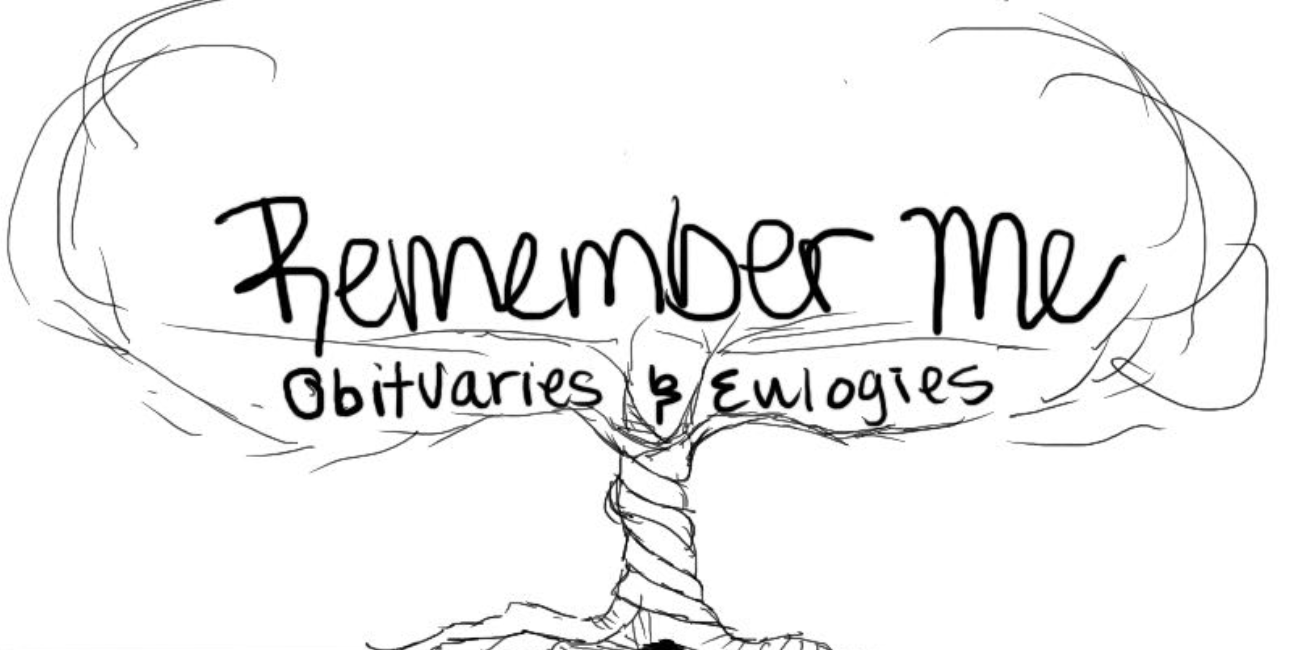 Remember Me
Obituaries & Eulogies